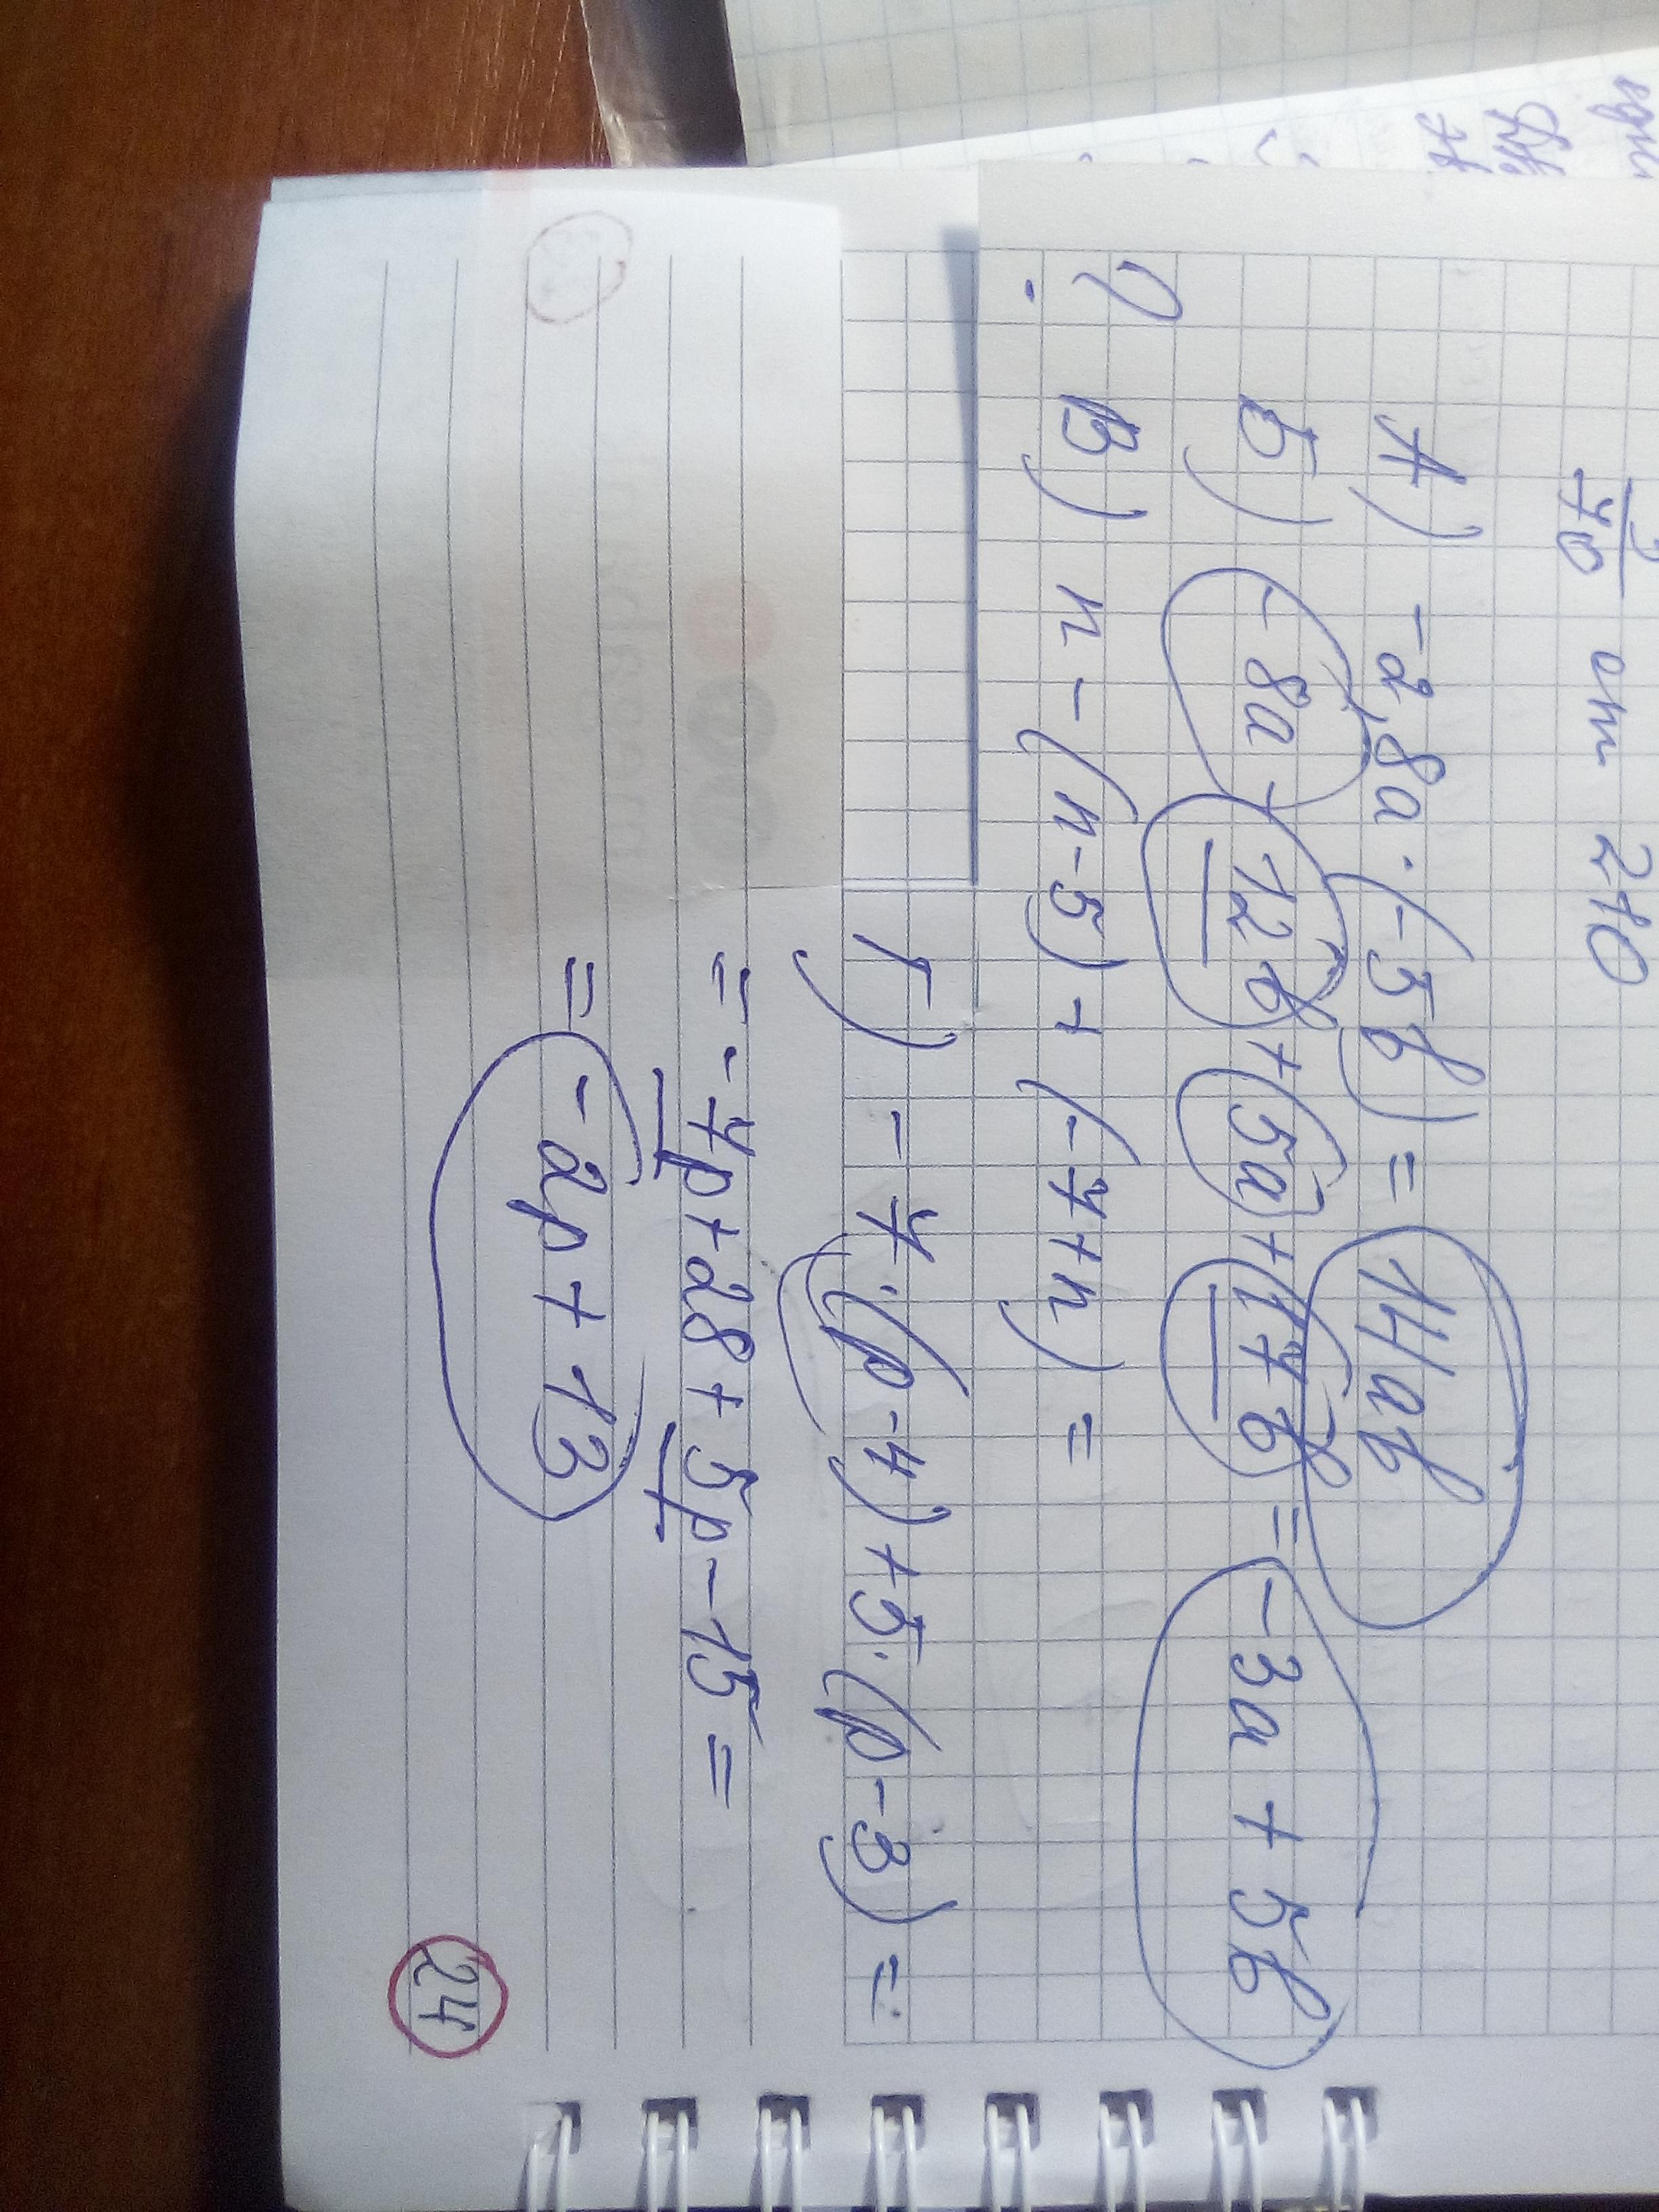 70 от
А) -2,8a · (-5b) = 14ab
Б) -8a - 12b + 5a + 17b = -3a + 5b
? В) n - (n-5) + (-7+n) =
Г) -7·(p-4)+5·(p-3) =
= -7p+28+5p-15 =
= -2p+13
24